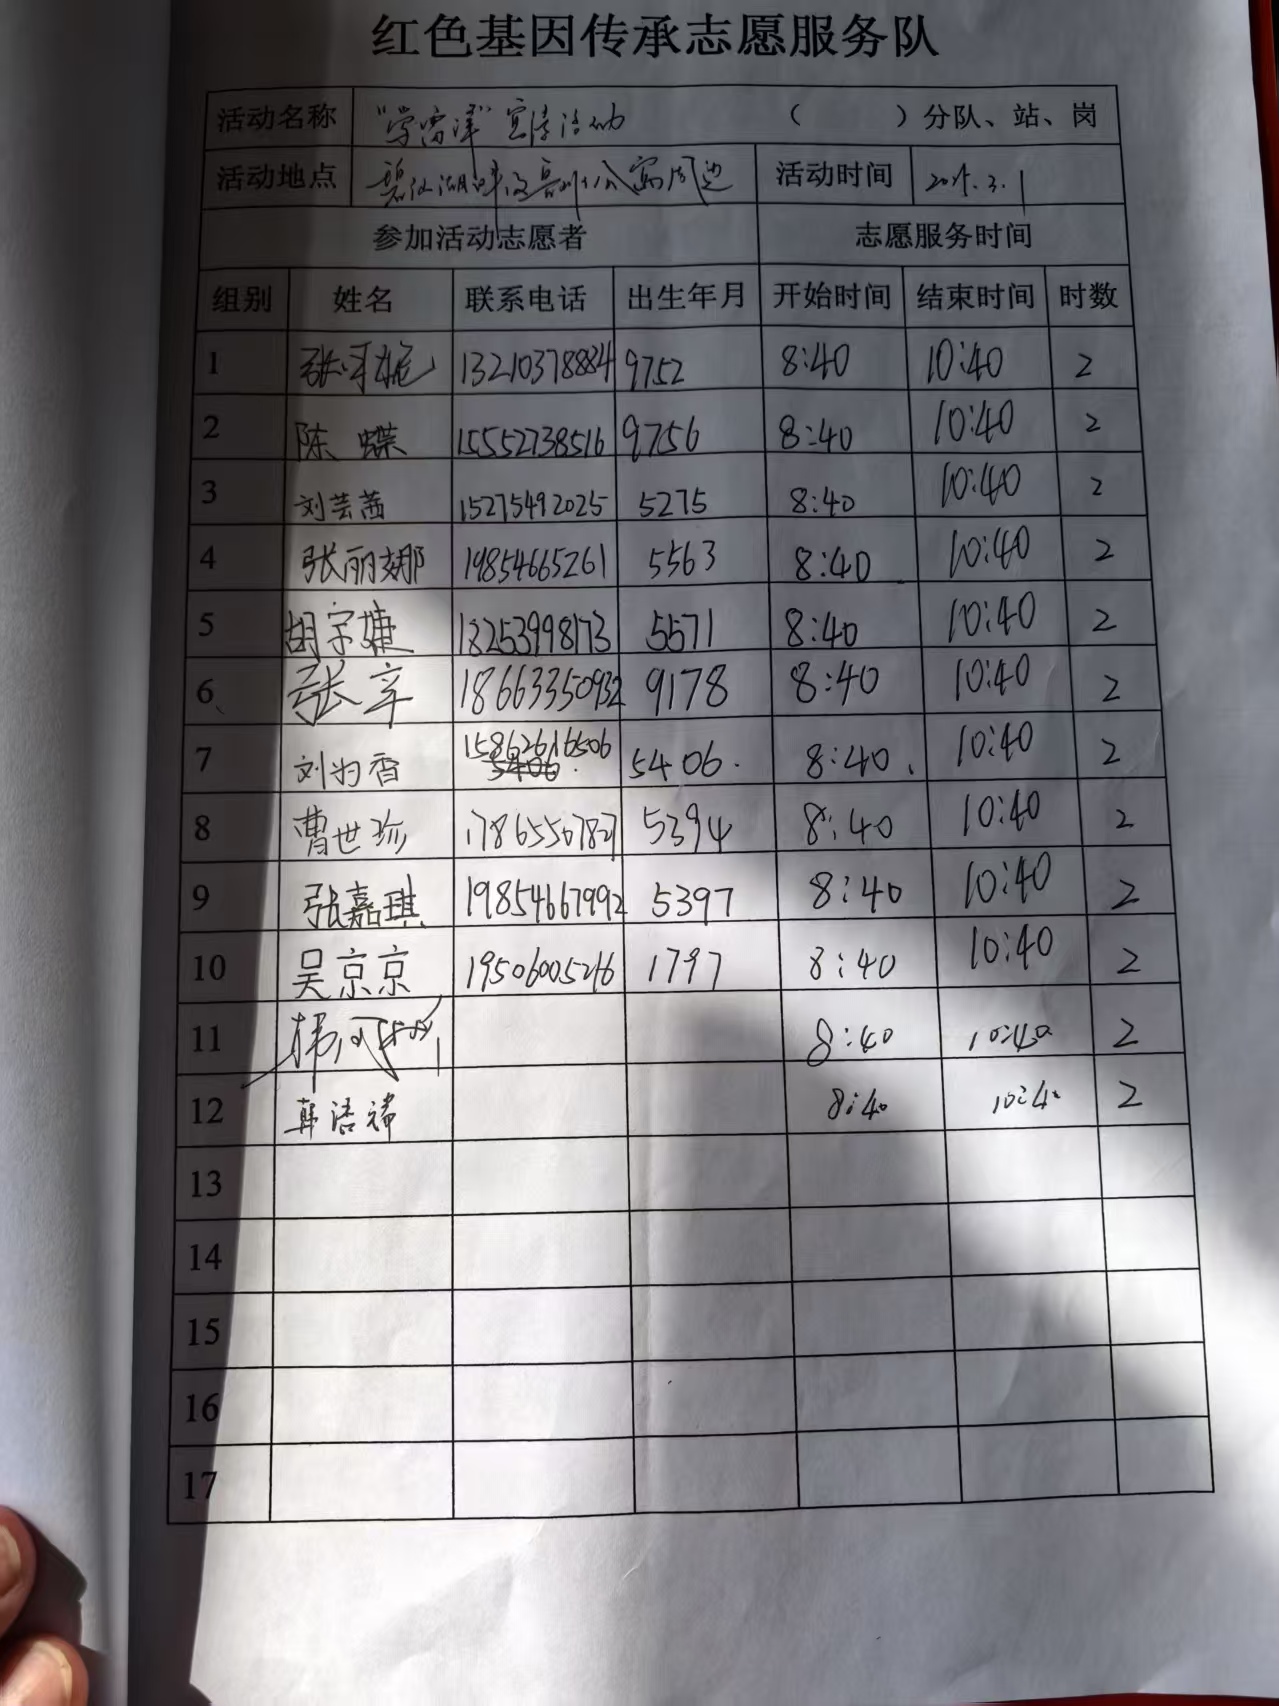 红色基因传承志愿服务队
活动名称 "学雷锋"宣传活动 （ ）分队、站、岗
活动地点 公寓周边 活动时间 3.1
参加活动志愿者 志愿服务时间
组别 姓名 联系电话 出生年月 开始时间 结束时间 时数
1 张 13210378884 9752 8:40 10:40 2
2 陈蝶 15552738516 9756 8:40 10:40 2
3 刘芸茜 15275492025 5275 8:40 10:40 2
4 张丽娜 19854665261 5563 8:40 10:40 2
5 胡宇婕 18253998173 5571 8:40 10:40 2
6 张辛 18663350932 9178 8:40 10:40 2
7 刘为香 15862616506 5406. 8:40. 10:40 2
8 曹世珍 17865567827 5394 8:40 10:40 2
9 张嘉琪 19854667992 5397 8:40 10:40 2
10 吴京京 19506005216 1797 8:40 10:40 2
11 8:40 10:40 2
12 韩浩 8:40 10:40 2
13
14
15
16
17